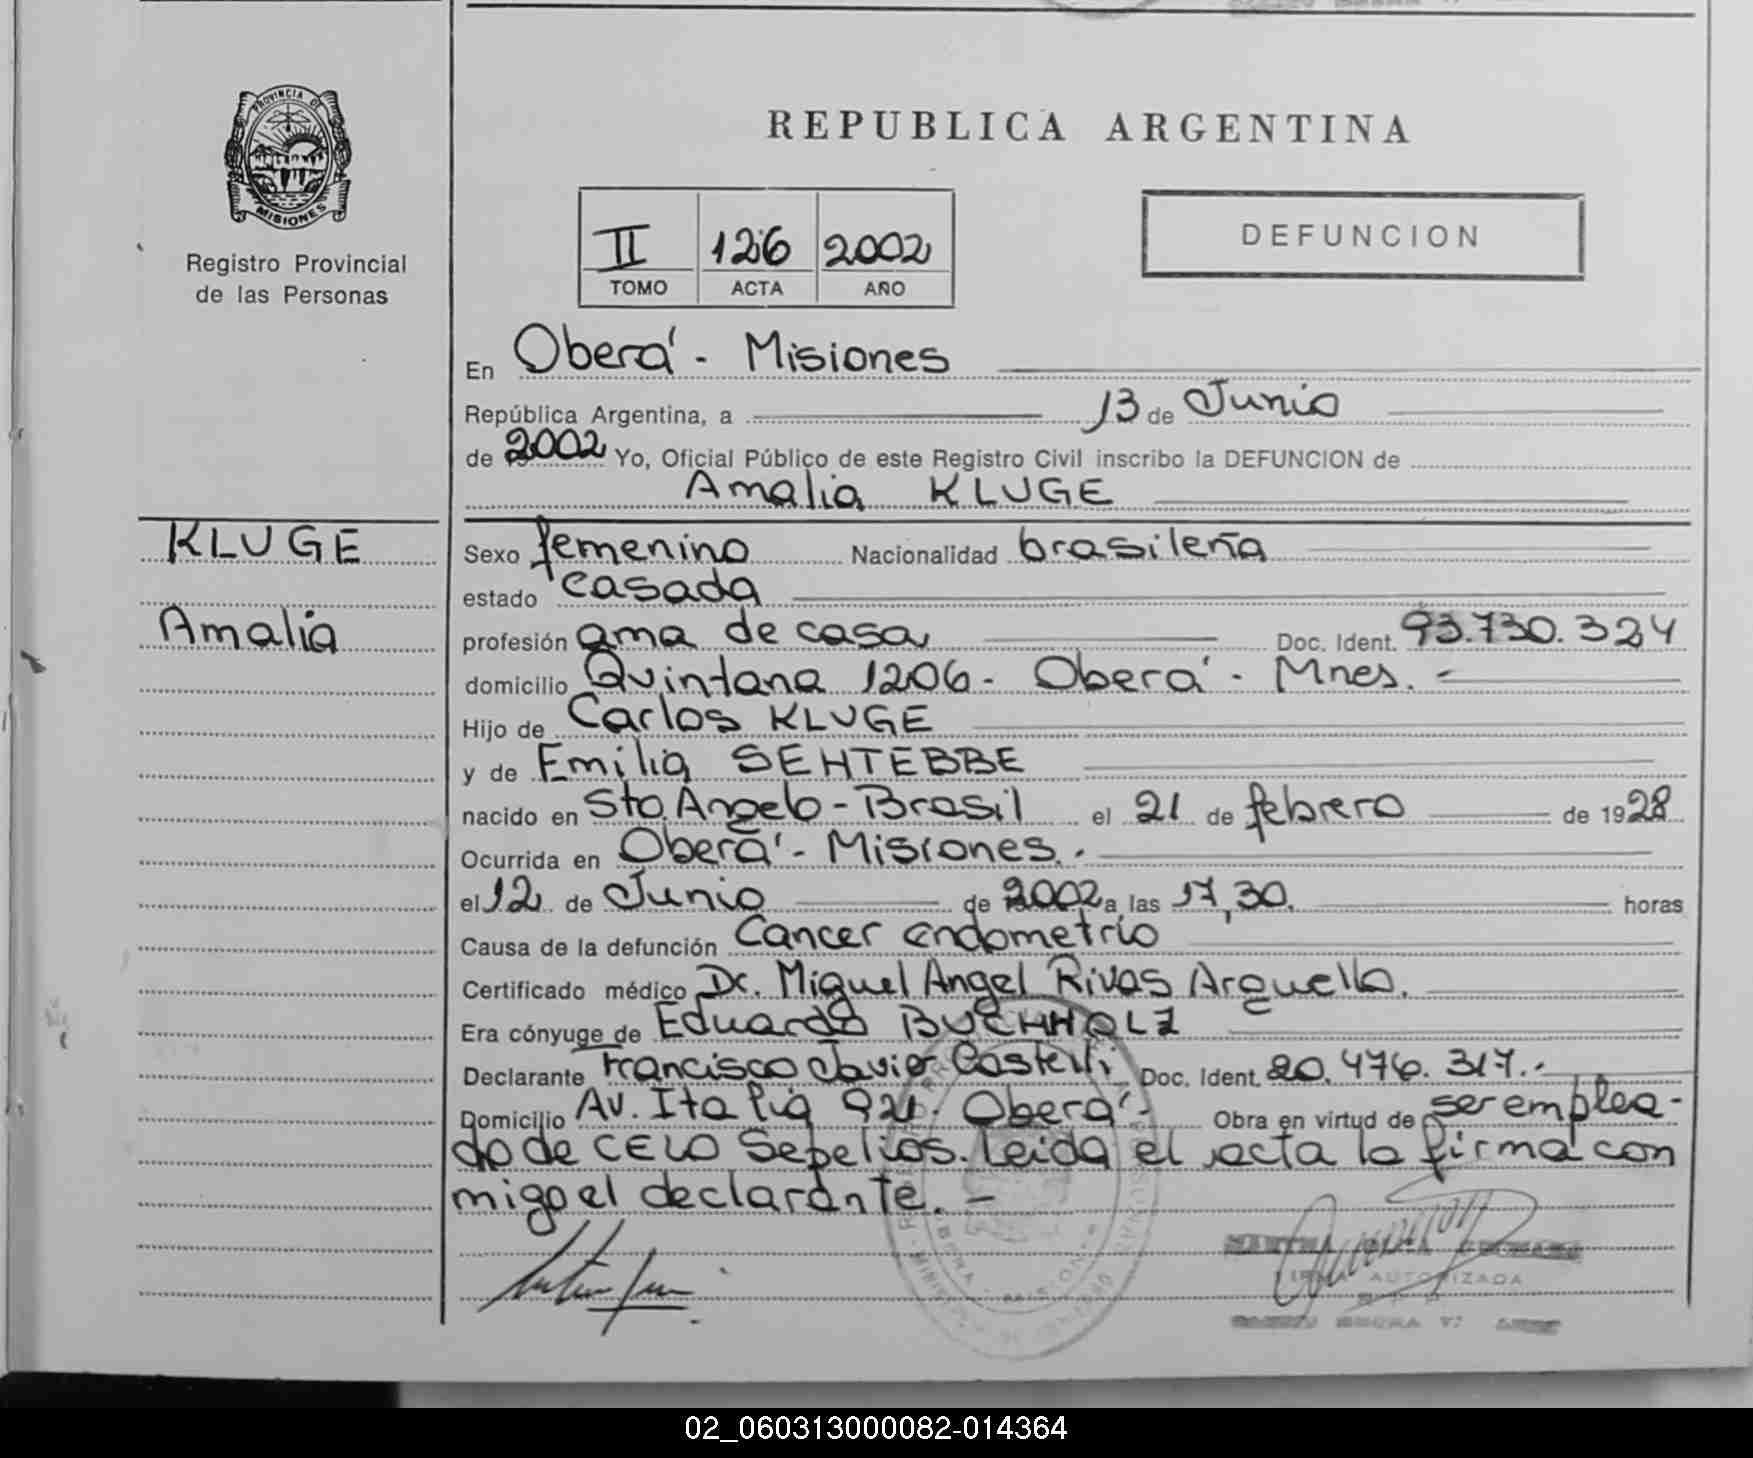 PROVINCIA DE
MISIONES
Registro Provincial
de las Personas
KLUGE
Amalia
REPUBLICA ARGENTINA
II 126 2002
TOMO ACTA AÑO
DEFUNCION
En Oberá - Misiones
República Argentina, a 13 de Junio
de 2002 Yo, Oficial Público de este Registro Civil inscribo la DEFUNCION de
Amalia KLUGE
Sexo femenino Nacionalidad brasileña
estado casada
profesión ama de casa Doc. Ident. 93.730.324
domicilio Quintana 1206 - Oberá - Mnes. -
Hijo de Carlos KLUGE
y de Emilia SEHTEBBE
nacido en Sto. Angelo - Brasil el 21 de febrero de 1928
Ocurrida en Oberá - Misiones. -
el 12 de Junio de 2002 a las 17,30. horas
Causa de la defunción Cancer endometrio
Certificado médico Dr. Miguel Angel Rivas Arguello.
Era cónyuge de Eduardo BUCHHOLZ
Declarante Francisco Javier Castelli Doc. Ident. 20.476.317.-
Domicilio Av. Italia 921. Oberá - Obra en virtud de ser emplea-
do de CELO Sepelios. Leida el acta la firma con
migo el declarante. -
AUTORIZADA
02_060313000082-014364